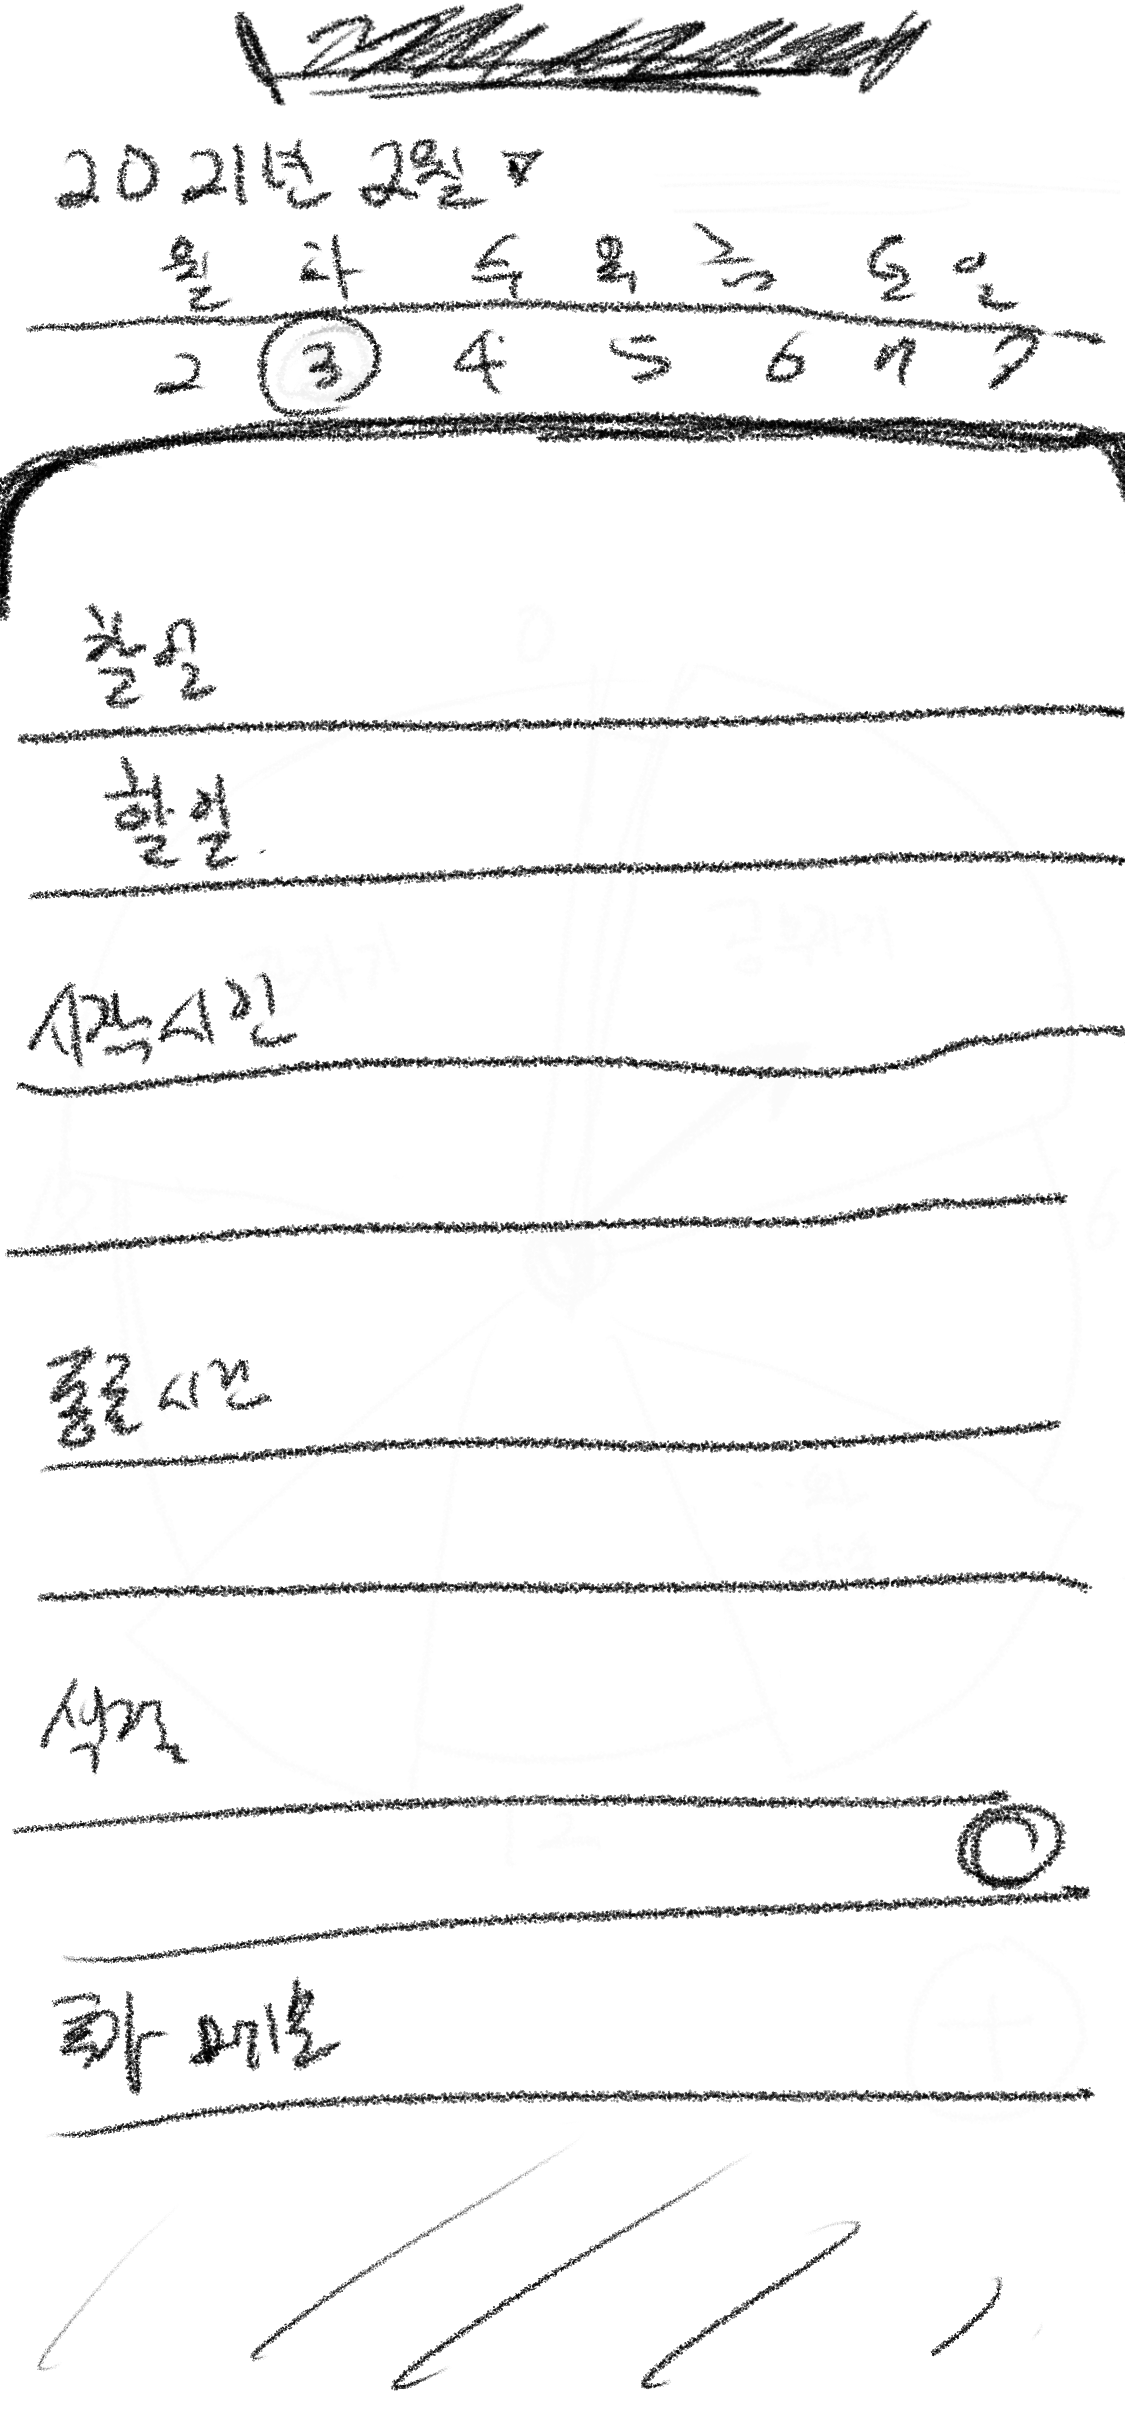 2021년 2월 ▼
월 화 수 목 금 토 일
2 3 4 5 6 7 7
할일
할일.
시작시간
종료시간
색깔
메모